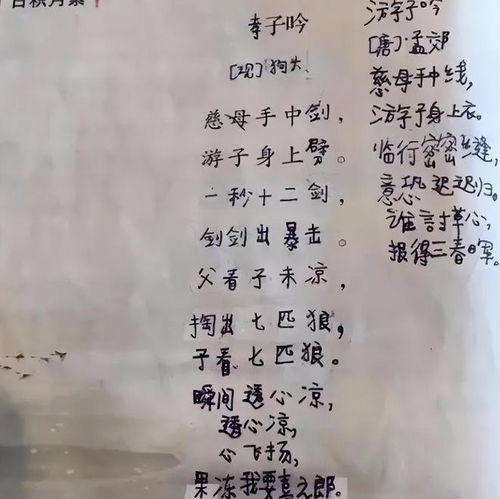 日积月累
孝子吟
[现]狗头
慈母手中剑,
游子身上劈。
一秒十二剑,
剑剑出暴击。
父看子未凉,
掏出七匹狼,
子看七匹狼。
瞬间透心凉,
透心凉,
心飞扬,
果冻我要喜之郎。
游子吟
[唐]孟郊
慈母手中线,
游子身上衣。
临行密密缝,
意恐迟迟归。
谁言寸草心,
报得三春晖。